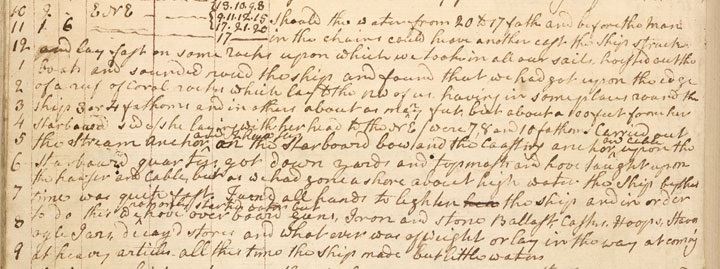 10 2 ENE 13.10.9.8
11 1 6 9.11.12.15 17.21.20 Should the water from 20 to 17 fath and before the man
17 in the chains could heave another cast the Ship Struck
12 and lay fast on some rocks upon which we took in all our sails hoisted out the
1 boats and sounded round the Ship and found that we had got upon the edge
2 of a reef of Coral rocks which lay to the NW of us having in some places round the
3 Ship 3 or 4 fathoms and in others about as many feet, but about a 100 feet from her
4 starboard side she laying with her head to the NE were 7 8 and 10 fathom Carried out
5 the Stream Anchor on the starboard bow and the Coasting anchor and Cable upon the
6 Starboard quarter got down yards and topmast and hove taught upon
the hawser and Cable but as we had gone a shore about high water the Ship by this
7 time was quite fast. Turn'd all hands to lighten the Ship and in order
8 to do this hove over board Guns, Iron and Stone Ballast Casks, Hoops, Staves
oyle Jars, decay'd stores and whatever was of weight or lay in the way at coming
9 at heavy articles. all this time the Ship made but little water